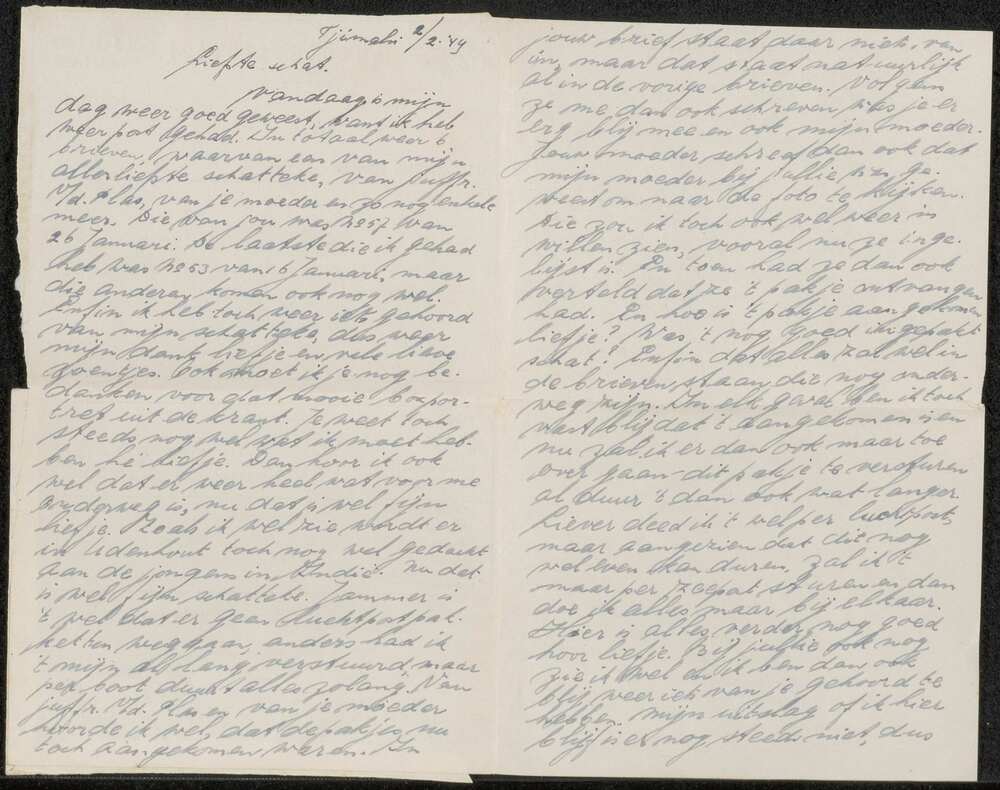 Tjimahi 2/2-'49
Liefste schat.
Vandaag is mijn
dag weer goed geweest, want ik heb
weer post gehad. In totaal weer 6
brieven, waarvan een van mijn
allerliefste schatteke, van juffr.
v/d. Plas, van je moeder en zo nog enkele
meer. Die van jou was No 57 van
26 Januari. De laatste die ik gehad
heb was No 53 van 16 Januari, maar
die anderen komen ook nog wel.
Enfin ik heb toch weer iets gehoord
van mijn schatteke, dus weer
mijn dank liefje en vele lieve
zoentjes. Ook moet ik je nog be-
danken voor dat mooie
tret uit de krant. Je weet toch
steeds nog wel wat ik moet heb-
ben hè liefje. Dan hoor ik ook
wel dat er weer heel wat voor me
onderweg is, nu dat is wel fijn
liefje. Zoals ik wel zie wordt er
in Udenhout toch nog wel gedacht
aan de jongens in Indië. Nu dat
is wel fijn schatteke. Jammer is
't wel dat er geen luchtpostpak-
ketten weggaan, anders had ik
't mijn al lang verstuurd, maar
per boot duurt alles zolang. Van
juffr. v/d. Plas en van je moeder
hoorde ik wel, dat de pakjes nu
toch aangekomen waren. In
jouw brief staat daar niets van
in, maar dat staat natuurlijk
al in de vorige brieven. Volgens
ze me dan ook schreven, was je er
erg blij mee en ook mijn moeder.
Jouw moeder schreef dan ook dat
mijn moeder bij jullie was ge-
weest om naar de foto te kijken.
Die zou ik toch ook wel weer in
willen zien, vooral nu ze inge-
lijst is. En toen had ze dan ook
verteld dat ze 't pakje ontvangen
had. En hoe is 't pakje aangekomen
liefje? Was 't nog goed ingepakt
schat? Enfin dat alles zal wel in
de brieven staan die nog onder-
weg zijn. In elk geval ben ik toch
vast blij dat 't aangekomen is en
nu zal ik er dan ook maar toe
over gaan dit pakje te versturen
al duur 't dan ook wat langer.
Liever deed ik 't wel per luchtpost,
maar aangezien dat dit nog
wel even kan duren, zal ik 't
maar per zeepost sturen en dan
doe ik alles maar bij elkaar.
Hier is alles verder nog goed
hoor liefje. Bij jullie ook nog
zie ik wel en ik ben dan ook
blij weer iets van je gehoord te
hebben. Mijn uitslag of ik hier
blijf is er nog steeds niet, dus